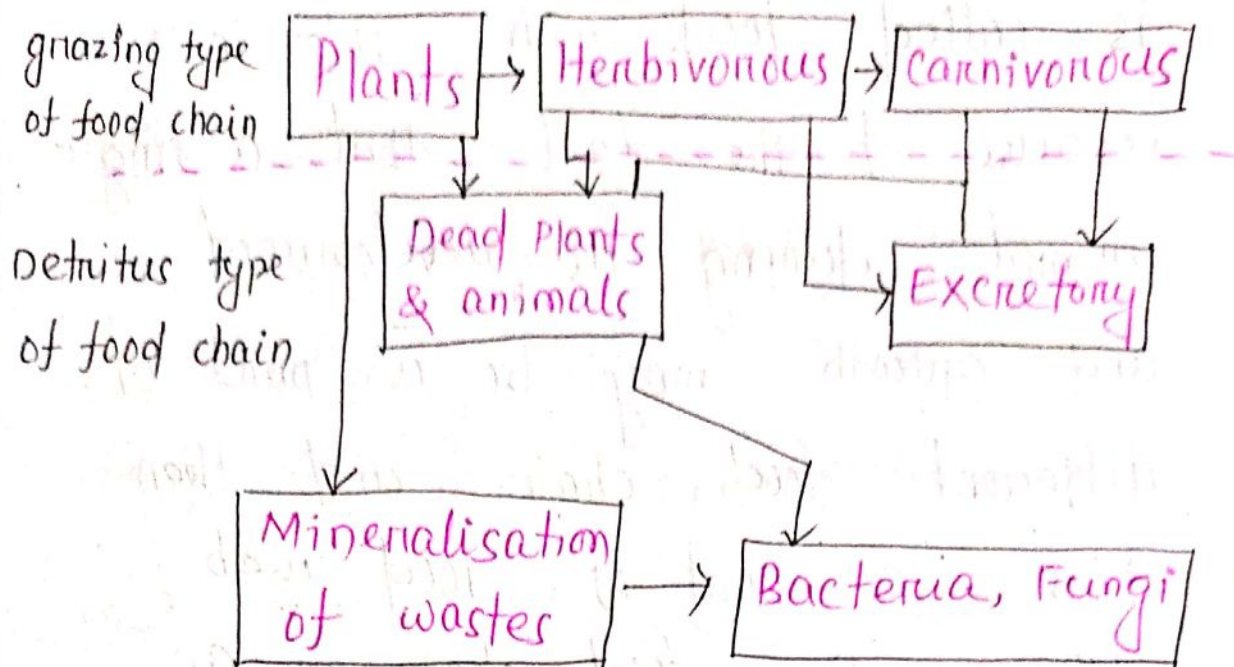 grazing type
of food chain
Plants
Herbivorous
Carnivorous
Detritus type
of food chain
Dead Plants
& animals
Excretory
Mineralisation
of wastes
Bacteria, Fungi